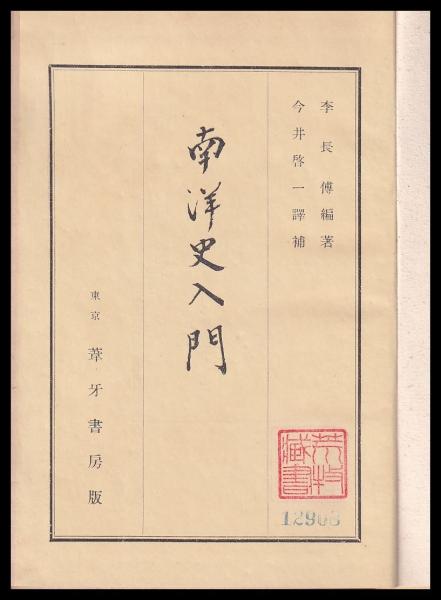 李長傅編著
今井啓一譯補
南洋史入門
東京 葦牙書房版
藏書